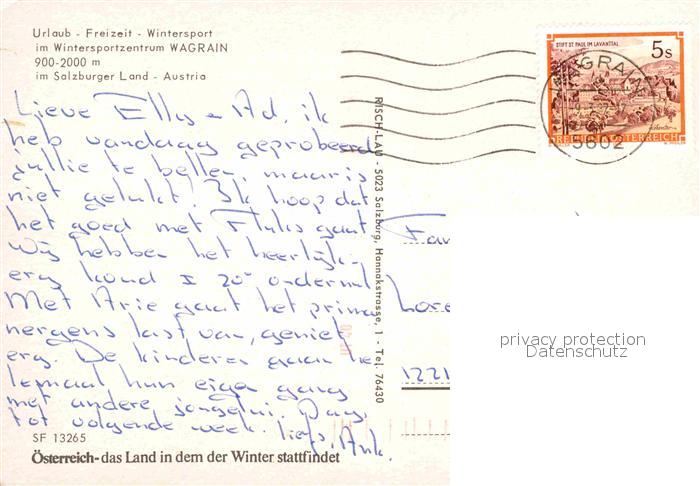 Urlaub - Freizeit - Wintersport
im Wintersportzentrum WAGRAIN
900-2000 m
im Salzburger Land - Austria
STIFT ST. PAUL IM LAVANTTAL
5s
WAGRAIN
5602
REPUBLIK ÖSTERREICH
Lieve Elly en Ad, ik
heb vandaag geprobeerd
jullie te bellen, maar is
niet gelukt! Ik hoop dat
het goed met gaat
Wij hebben het heerlijk,
erg koud ± 20° onder nul
Met Arie gaat het prima,
nergens last van, geniet
erg. De kinderen gaan he
lemaal hun eigen gang
met andere jongelui. Dag,
tot volgende week. liefs, Ank.
RISCH-LAU · 5023 Salzburg, Hannakstrasse, 1 - Tel. 76430
Fam
1221
privacy protection
Datenschutz
SF 13265
Österreich-das Land in dem der Winter stattfindet